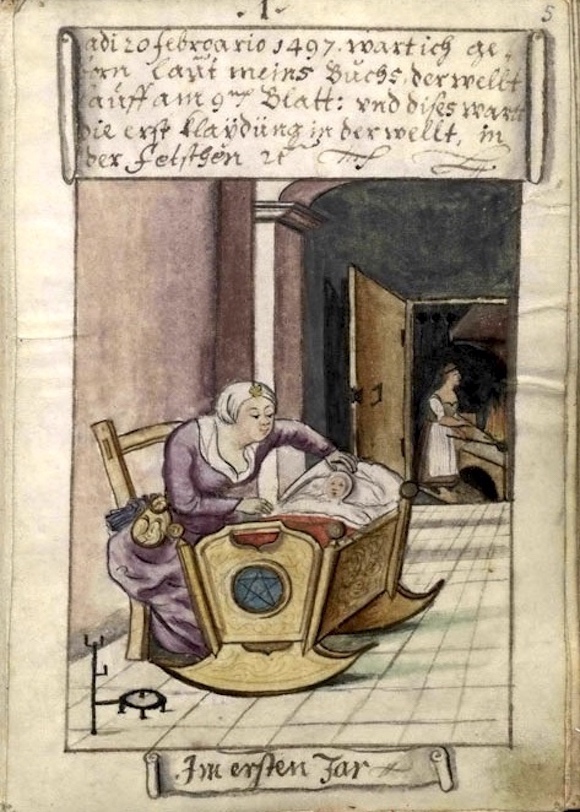 · 1 ·
5
adi 20 febroario 1497. wart ich ge,
orn laut meins Buchs, der wellt
auff am 9 Blatt: vnd dises wart
die erst klaydung in der wellt, in
der Fetschen
Im ersten Jar